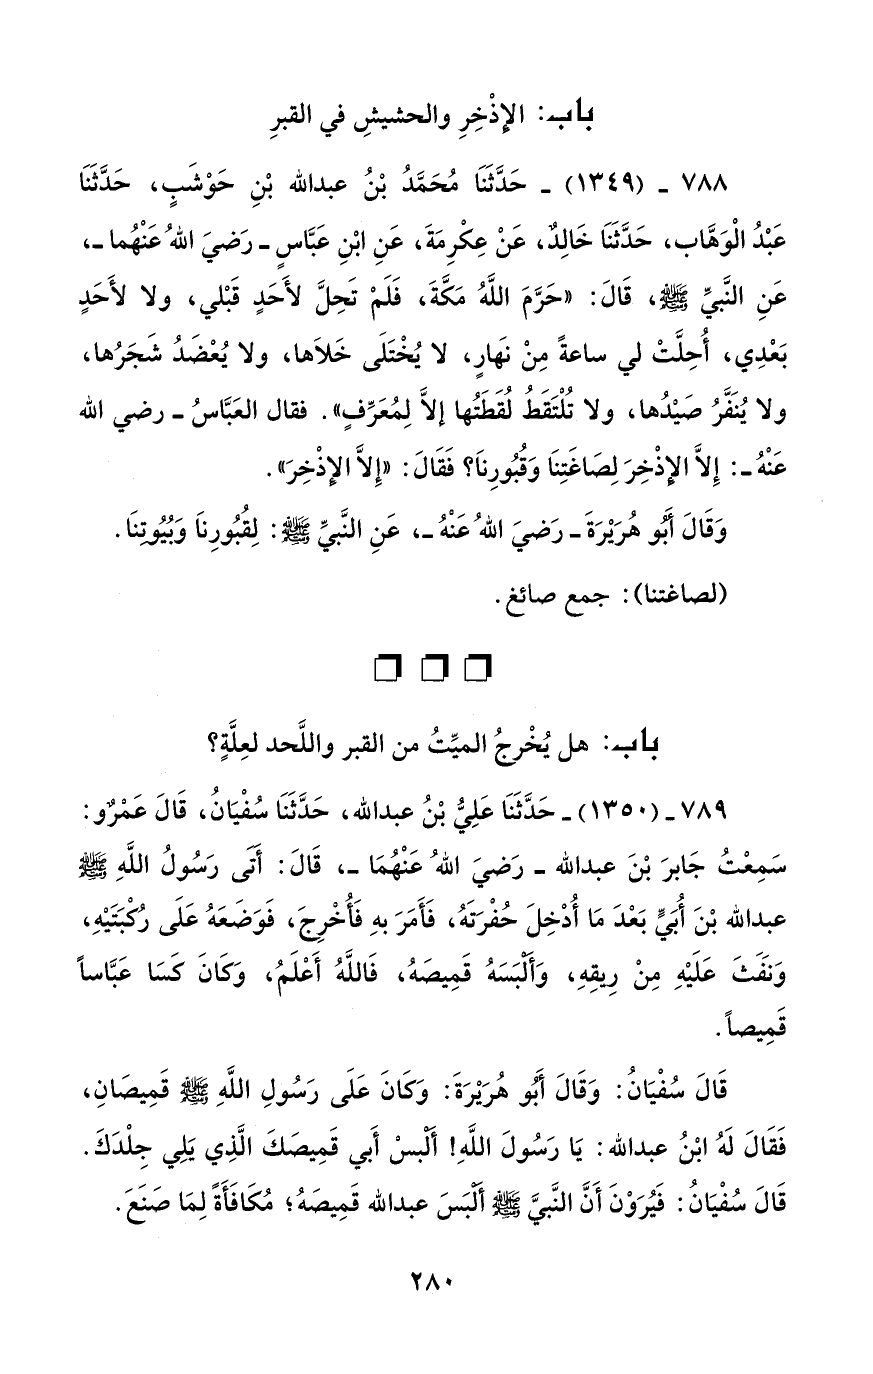 باب: الإذْخِرِ والحشيشِ في القبرِ
٧٨٨ ـ (١٣٤٩) ـ حَدَّثَنَا مُحَمَّدُ بْنُ عبدالله بْنِ حَوْشَبٍ، حَدَّثَنَا
عَبْدُ الْوَهَّاب، حَدَّثَنَا خَالِدٌ، عَنْ عِكْرِمَةَ، عَنِ ابْنِ عَبَّاسٍ ـ رَضِيَ اللهُ عَنْهُما ـ،
عَنِ النَّبِيِّ ﷺ، قَالَ: «حَرَّمَ اللَّهُ مَكَّةَ، فَلَمْ تَحِلَّ لأَحَدٍ قَبْلي، ولا لأَحَدٍ
بَعْدِي، أُحِلَّتْ لي ساعةً مِنْ نهَارٍ، لا يُخْتَلَى خَلاَها، ولا يُعْضَدُ شَجَرُها،
ولا يُنَفَّرُ صَيْدُها، ولا تُلْتَقَطُ لُقَطَتُها إلاَّ لِمُعَرِّفٍ». فقال العَبَّاسُ ـ رضي الله
عَنْهُ ـ: إِلاَّ الإِذْخِرَ لِصَاغَتِنَا وَقُبُورِنَا؟ فَقَالَ: «إِلاَّ الإِذْخِرَ».
وَقَالَ أَبُو هُرَيْرَةَ ـ رَضِيَ اللهُ عَنْهُ ـ، عَنِ النَّبِيِّ ﷺ: لِقُبُورِنَا وَبُيُوتِنَا.
(لصاغتنا): جمع صائغ.
باب: هل يُخْرِجُ الميِّتُ من القبر واللَّحد لعِلَّةٍ؟
٧٨٩ ـ (١٣٥٠) ـ حَدَّثَنَا عَلِيُّ بْنُ عبدالله، حَدَّثَنَا سُفْيَانُ، قَالَ عَمْرٌو:
سَمِعْتُ جَابِرَ بْنَ عبدالله ـ رَضِيَ اللهُ عَنْهُمَا ـ، قَالَ: أَتَى رَسُولُ اللَّهِ ﷺ
عبدالله بْنَ أُبَيٍّ بَعْدَ مَا أُدْخِلَ حُفْرَتَهُ، فَأَمَرَ بهِ فَأُخْرِجَ، فَوَضَعَهُ عَلَى رُكْبَتَيْهِ،
وَنَفَثَ عَلَيْهِ مِنْ رِيقِهِ، وَأَلْبَسَهُ قَمِيصَهُ، فَاللَّهُ أَعْلَمُ، وَكَانَ كَسَا عَبَّاساً
قَمِيصاً.
قَالَ سُفْيَانُ: وَقَالَ أَبُو هُرَيْرَةَ: وَكَانَ عَلَى رَسُولِ اللَّهِ ﷺ قَمِيصَانِ،
فَقَالَ لَهُ ابْنُ عبدالله: يَا رَسُولَ اللَّهِ! أَلْبسْ أَبي قَمِيصَكَ الَّذِي يَلِي جِلْدَكَ.
قَالَ سُفْيَانُ: فَيُرَوْنَ أَنَّ النَّبيَّ ﷺ أَلْبَسَ عبدالله قَمِيصَهُ؛ مُكَافَأَةً لِمَا صَنَعَ.
٢٨٠